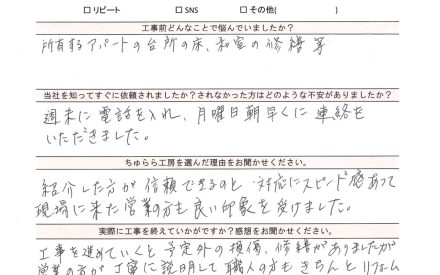 □ リピート □ SNS □ その他( )
工事前どんなことで悩んでいましたか?
所有するアパートの台所の床、和室の修繕等
当社を知ってすぐに依頼されましたか?されなかった方はどのような不安がありましたか?
週末に電話を入れ、月曜日朝早くに連絡を
いただきました。
ちゅらら工房を選んだ理由をお聞かせください。
紹介した方が信頼できるのと、対応にスピード感あって
現場に来た営業の方も良い印象を受けました。
実際に工事を終えていかがですか?感想をお聞かせください。
工事を進めていくと予定外の損傷、修繕がありましたが
営業の方が丁寧に説明して職人の方もきちんとリフォーム